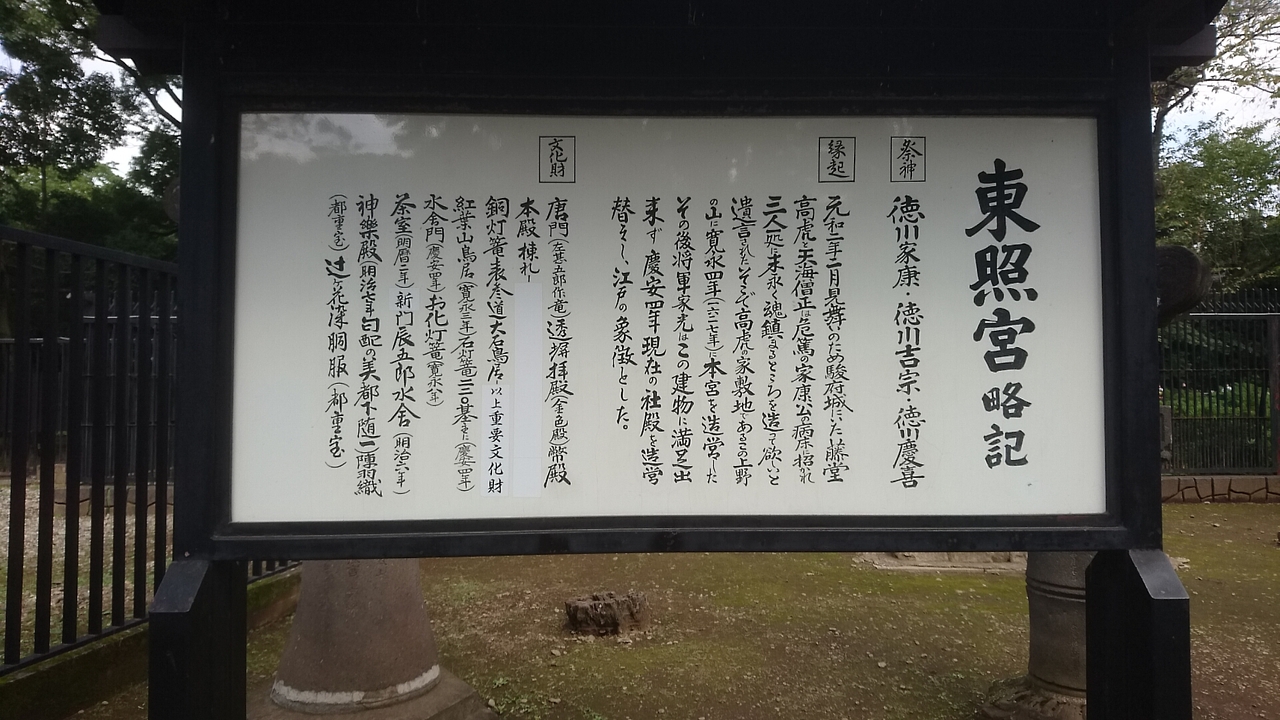 東照宮略記
祭神
徳川家康・徳川吉宗・徳川慶喜
縁起
元和二年二月見舞いのため駿府城にいた藤堂
高虎と天海僧正は危篤の家康公の病床に招かれ
三人一処に末永く魂鎮まるところを造って欲しいと
遺言された。そこで高虎の家敷地であるこの上野
の山に寛永四年(一六二七年)に本宮を造営した
その後将軍家光はこの建物に満足出
来ず慶安四年現在の社殿を造営
替えし、江戸の象徴とした。
文化財
唐門(左甚五郎作竜)透塀拝殿(金色殿)幣殿
本殿棟札
銅灯篭表参道大石鳥居以上重要文化財
紅葉山鳥居(寛永三年)石灯篭二二〇基(慶安四年)
水舎門(慶安四年)お化灯篭(寛永八年)
茶室(明暦二年)新門辰五郎水舎(明治六年)
神樂殿(明治七年)勾配の美都下随一陣羽織
(都重宝)辻ケ花染胴服(都重宝)